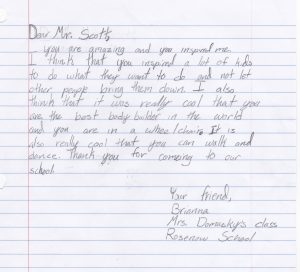 Dear Mr. Scott,
you are amazing and you inspired me.
I think that you inspired a lot of kids
to do what they want to do and not let
other people bring them down. I also
think that it was really cool that you
are the best body builder in the world
and you are in a wheelchair. It is
also really cool that you can walk and
dance. Thank you for comeing to our
school.
Your friend,
Brianna
Mrs. class
Rosenow School